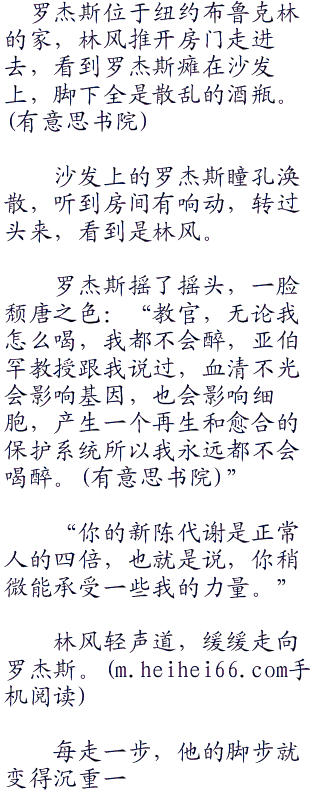 罗杰斯位于纽约布鲁克林
的家，林风推开房门走进
去，看到罗杰斯瘫在沙发
上，脚下全是散乱的酒瓶。
(有意思书院)
沙发上的罗杰斯瞳孔涣
散，听到房间有响动，转过
头来，看到是林风。
罗杰斯摇了摇头，一脸
颓唐之色：“教官，无论我
怎么喝，我都不会醉，亚伯
罕教授跟我说过，血清不光
会影响基因，也会影响细
胞，产生一个再生和愈合的
保护系统所以我永远都不会
喝醉。(有意思书院)”
“你的新陈代谢是正常
人的四倍，也就是说，你稍
微能承受一些我的力量。”
林风轻声道，缓缓走向
罗杰斯。(m.heihei66.com手
机阅读)
每走一步，他的脚步就
变得沉重一